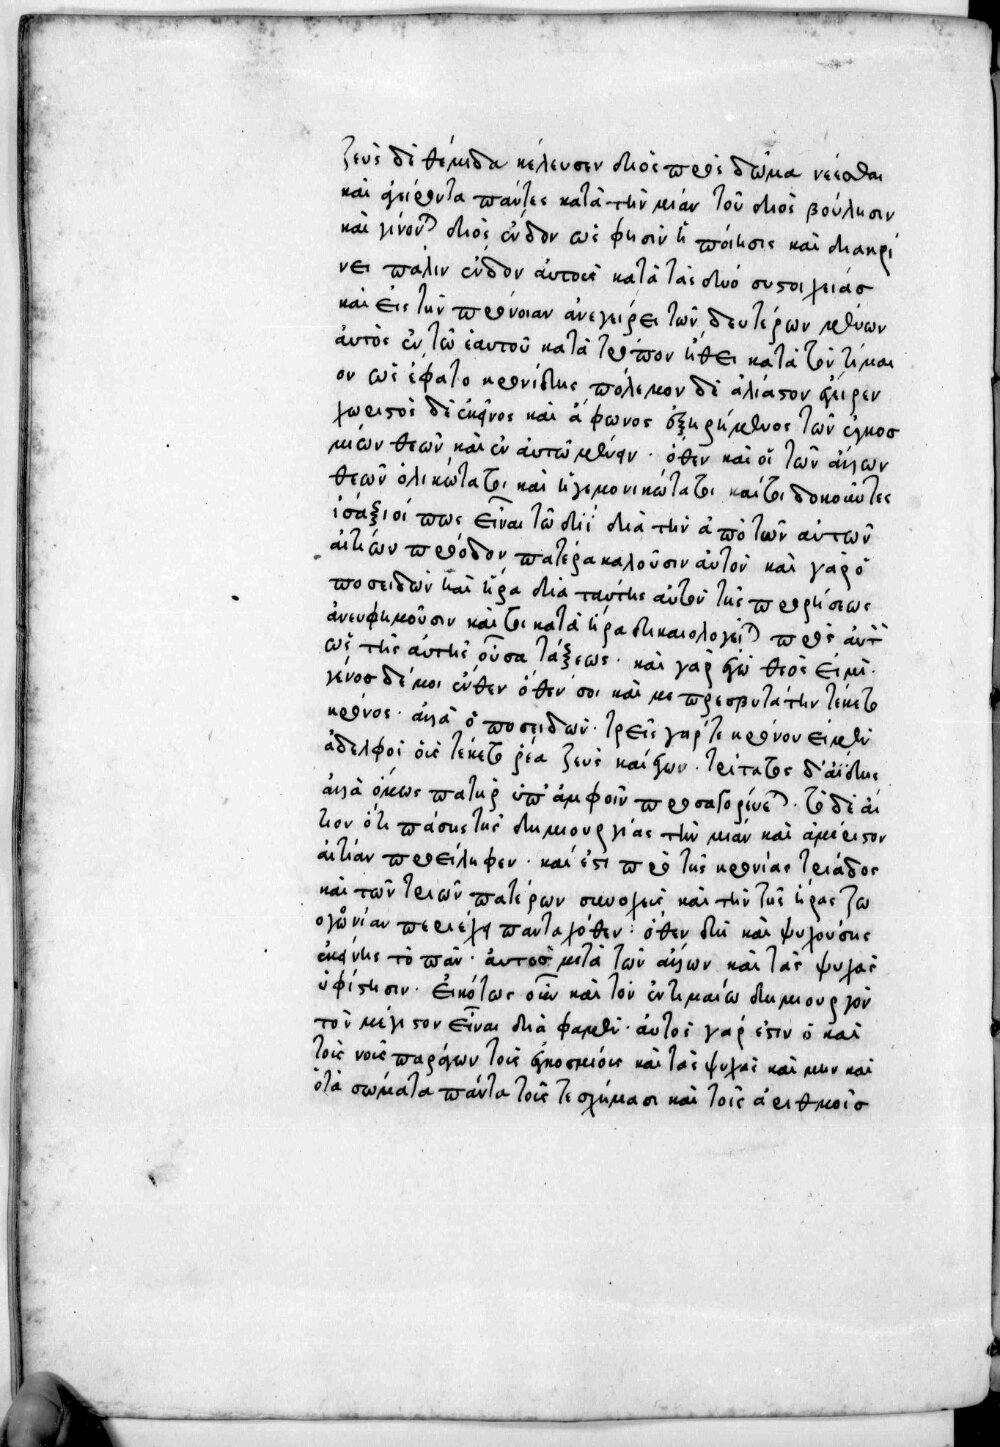 ζευς δὲ θέμιδα κέλευσεν διὸς πρὸς δῶμα νέεσθαι
καὶ ἀγείρονται πάντες κατὰ τὴν μίαν τοῦ διὸς βούλησιν
καὶ γίνονται διὸς ἔνδον ὥς φησιν ἡ ποίησις καὶ διακρί
νει πάλιν ἔνδον αὐτοὺς κατὰ τὰς δύο συστοιχείας
καὶ εἰς τὴν πρόνοιαν ἀνεγείρει τῶν δευτέρων μένων
αὐτὸς ἐν τῷ ἑαυτοῦ κατὰ τρόπον ἤθει κατὰ τὸν τίμαι
ον ὣς ἔφατο κρονίδης πόλεμον δὲ ἀλίαστον ἔγειρεν
χωριστὸς δὲ ἐκεῖνος καὶ ἄφωνος ἐξῃρημένος τῶν ἐγκοσ
μίων θεῶν καὶ ἐν αὐτῷ μένων · ὅθεν καὶ οἱ τῶν ἄλλων
θεῶν ὁλικώτατοι καὶ ἡγεμονικώτατοι καί τοι δοκοῦντες
ἰσάξιοί πως εἶναι τῷ διί διὰ τὴν ἀπὸ τῶν αὐτῶν
αἰτιῶν πρόοδον πατέρα καλοῦσιν αὐτὸν καὶ γὰρ ὁ
ποσειδῶν καὶ ἥρα διὰ ταύτης αὐτὸν τῆς προρήσεως
ἀνευφημοῦσιν καί τοι κατὰ ἥρα δικαιολογεῖται πρὸς αὐτὸν
ὡς τῆς αὐτῆς οὖσα τάξεως · καὶ γὰρ ἐγὼ θεός εἰμι ·
γένος δέ μοι ἔνθεν ὅθεν σοι καὶ με πρεσβυτάτην τέκετο
κρόνος · ἀλλὰ ὁ ποσειδῶν · τρεῖς γάρ τε κρόνου εἰμὲν
ἀδελφοὶ οἷς τέκετο ῥέα ζεὺς καὶ ἐγὼν · τρίτατος δ' ἀΐδης
ἀλλὰ ὅμως πατὴρ ὑπ' ἀμφοῖν προσαγορεύεται · τὸ δὲ αἴ
τιον ὅτι πάσης τῆς δημιουργίας τὴν μίαν καὶ ἀμέριστον
αἰτίαν προείληφεν · καὶ ἔστι πρὸ τῆς κρονίας τριάδος
καὶ τῶν τριῶν πατέρων συνοχεὺς καὶ τὴν τῆς ἥρας ζω
ογονίαν περιέχει πανταχόθεν · ὅθεν δὴ καὶ ψυχούσης
ἐκείνης τὸ πᾶν · αὐτὸς μετὰ τῶν ἄλλων καὶ τὰς ψυχὰς
ὑφίστησιν · εἰκότως οὖν καὶ τὸν ἐν τιμαίῳ δημιουργὸν
τὸν μέγιστον εἶναι δία φαμὲν · αὐτὸς γάρ ἐστιν ὁ καὶ
τοὺς νοῦς παράγων τοὺς ἐγκοσμίους καὶ τὰς ψυχὰς καὶ μὴν καὶ
ὁ τὰ σώματα πάντα τοῖς τε σχήμασι καὶ τοῖς ἀριθμοῖς